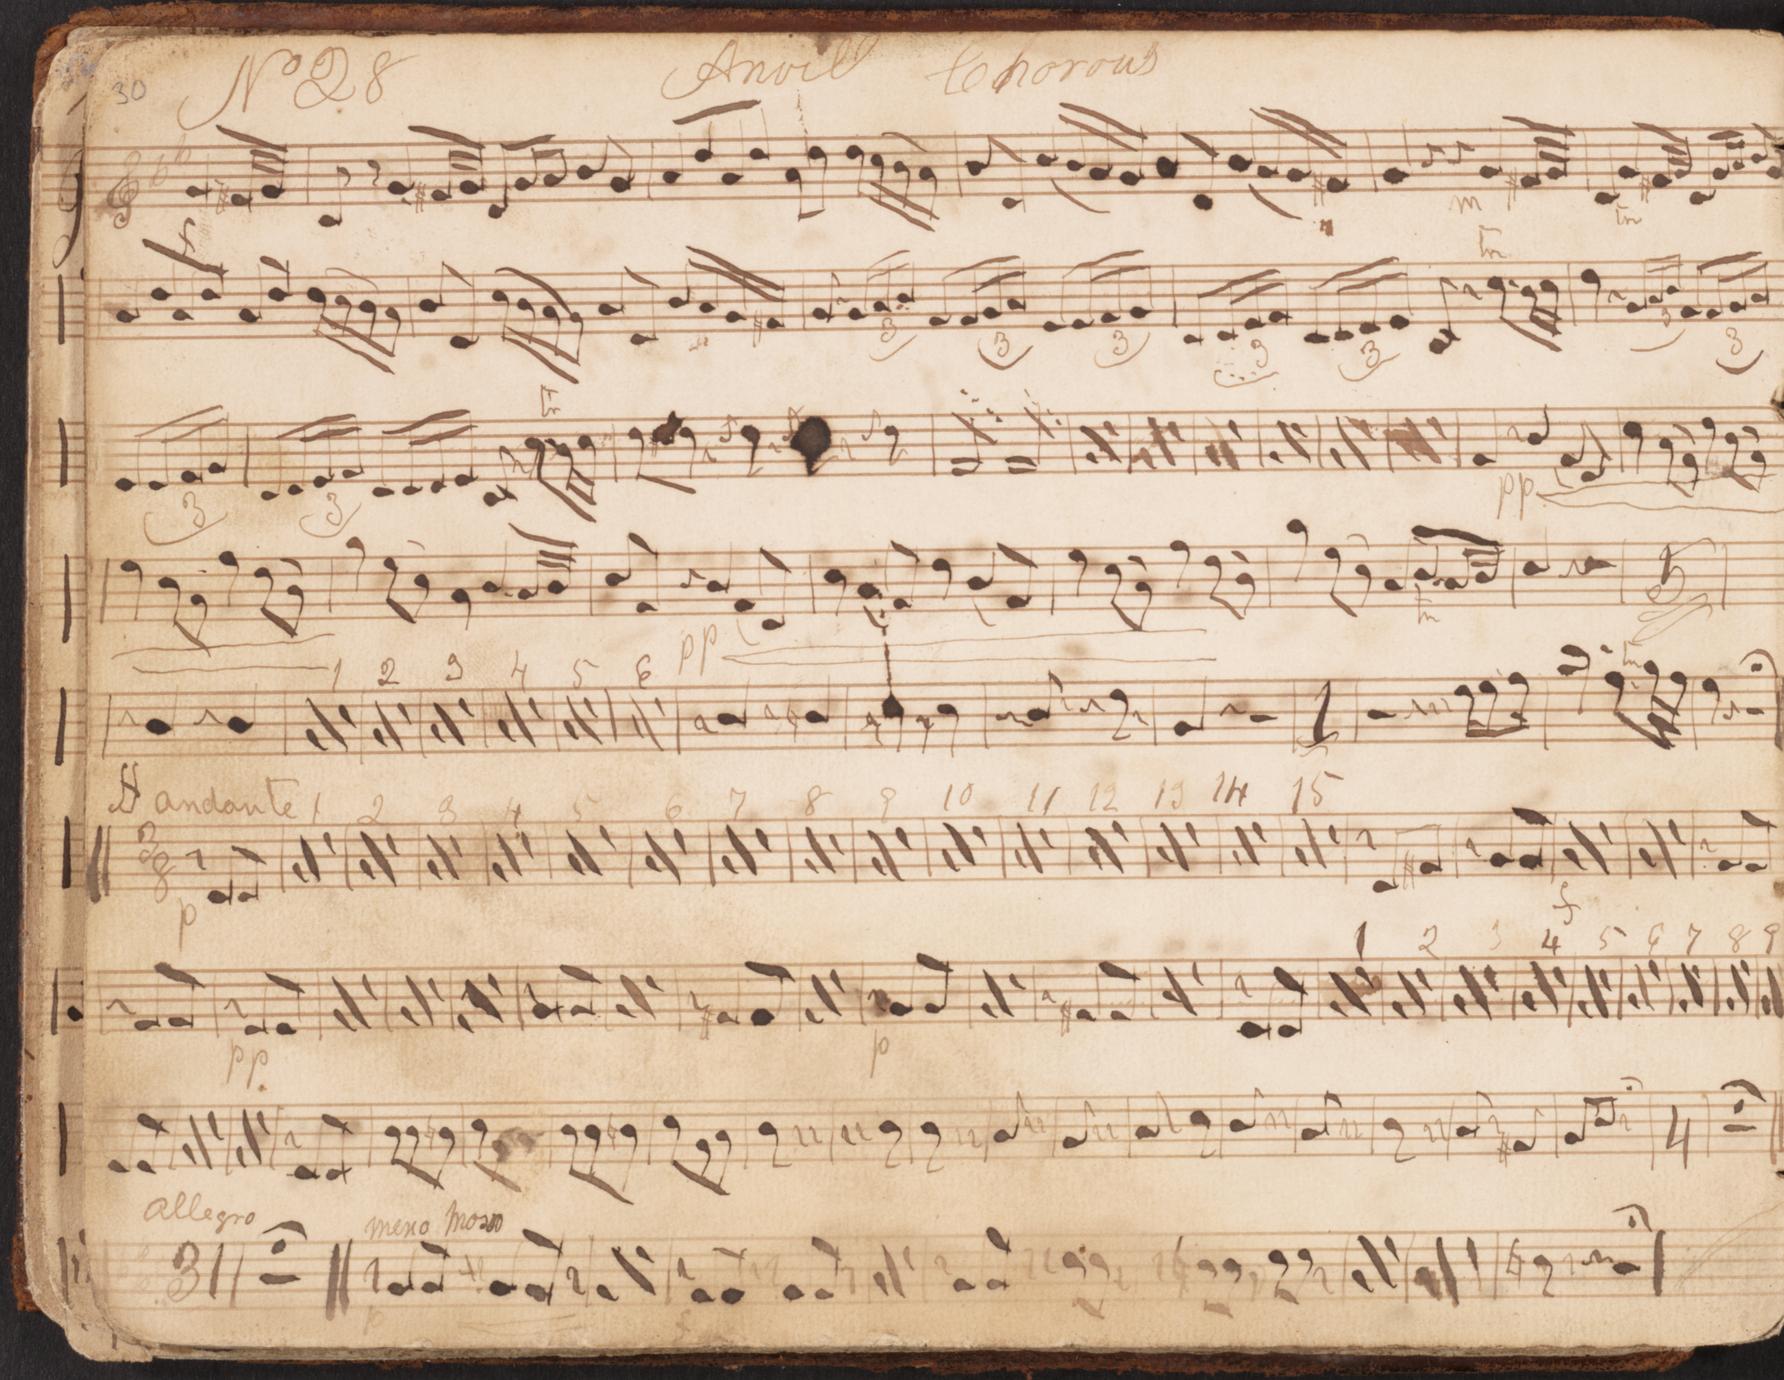 30 No 28 Anvil Chorous
f m tm
tm
3 3 3 3 3 3 3
tm
3 3 pp
pp tm 5
1 2 3 4 5 6 tm
1
andante 1 2 3 4 5 6 7 8 9 10 11 12 13 14 15
3 8
p f
1 2 3 4 5 6 7 8 9
pp p
4
allegro meno moso
31
p